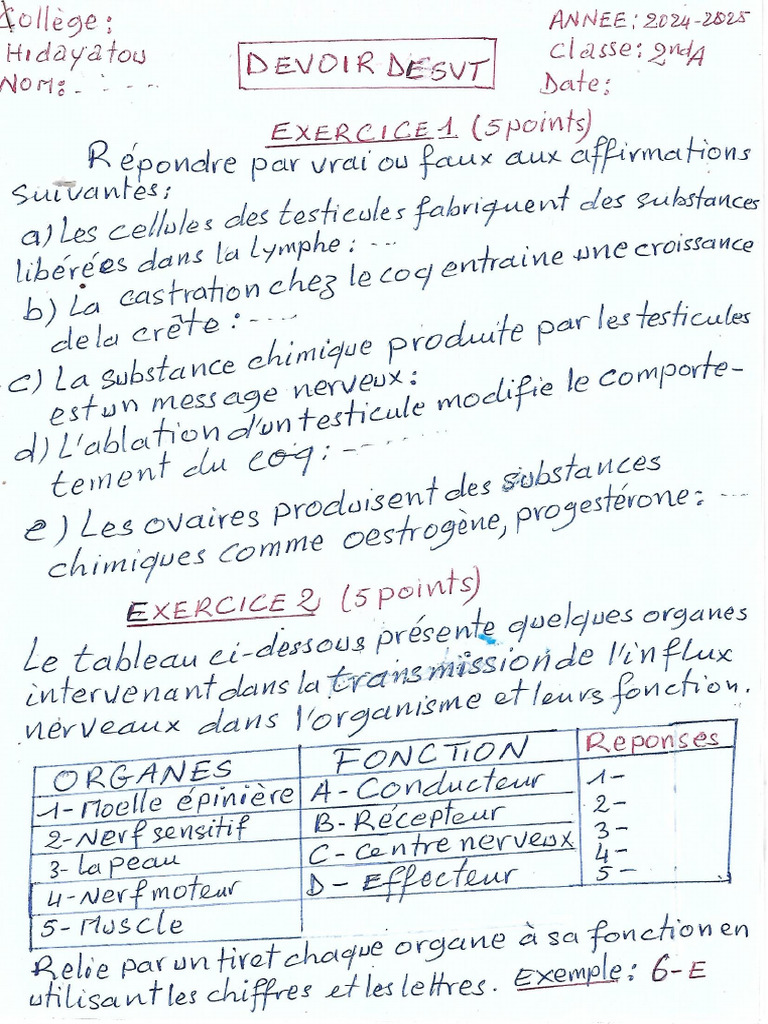 Collège:
Hidayatou
NOM:- - ---
DEVOIR DE SVT
ANNEE: 2024-2025
Classe: 2nd A
Date:
EXERCICE 1 (5 points)
Répondre par vrai ou faux aux affirmations
suivantes:
a) Les cellules des testicules fabriquent des substances
libérées dans la lymphe: ---
b) La castration chez le coq entraine une croissance
de la crête: ----
c) La substance chimique produite par les testicules
est un message nerveux:
d) L'ablation d'un testicule modifie le comporte-
tement du coq: ------
e) Les ovaires produisent des substances
chimiques comme oestrogène, progestérone: ---
EXERCICE 2 (5 points)
Le tableau ci-dessous présente quelques organes
intervenant dans la transmission de l'influx
nerveaux dans l'organisme et leurs fonction.
ORGANES FONCTION Reponses
1- Moelle épinière A- Conducteur 1-
2- Nerf sensitif B- Récepteur 2-
3- La peau C- Centre nerveux 3-
4- Nerf moteur D- Effecteur 4-
5- Muscle 5-
Relie par un tiret chaque organe à sa fonction en
utilisant les chiffres et les lettres. Exemple: 6-E